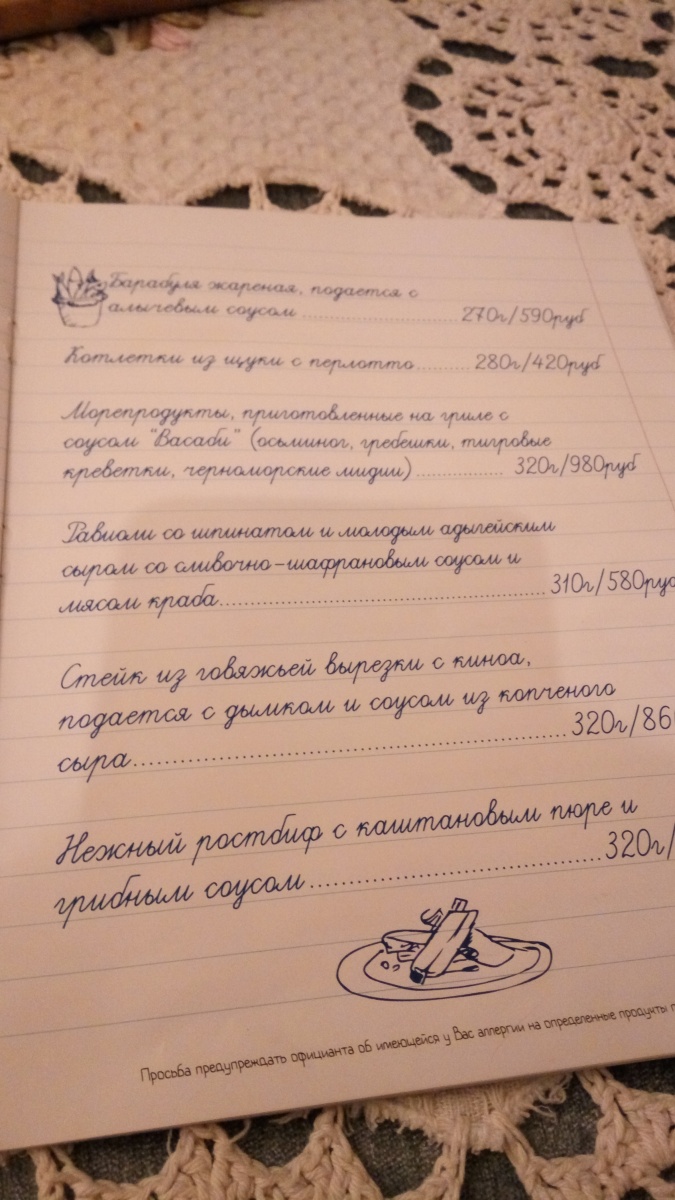 Барабуля жареная, подается с
алычевым соусом ........................ 270г/590руб
Котлетки из щуки с перлотто.......... 280г/420руб
Морепродукты, приготовленные на гриле с
соусом "Васаби" (осьминог, гребешки, тигровые
креветки, черноморские мидии) ................ 320г/980руб
Равиоли со шпинатом и молодым адыгейским
сыром со сливочно-шафрановым соусом и
мясом краба............................................... 310г/580руб
Стейк из говяжьей вырезки с киноа,
подается с дымком и соусом из копченого
сыра................................................... 320г/86
Нежный ростбиф с каштановым пюре и
грибным соусом.................................. 320г/
Просьба предупреждать официанта об имеющейся у Вас аллергии на определенные продукты